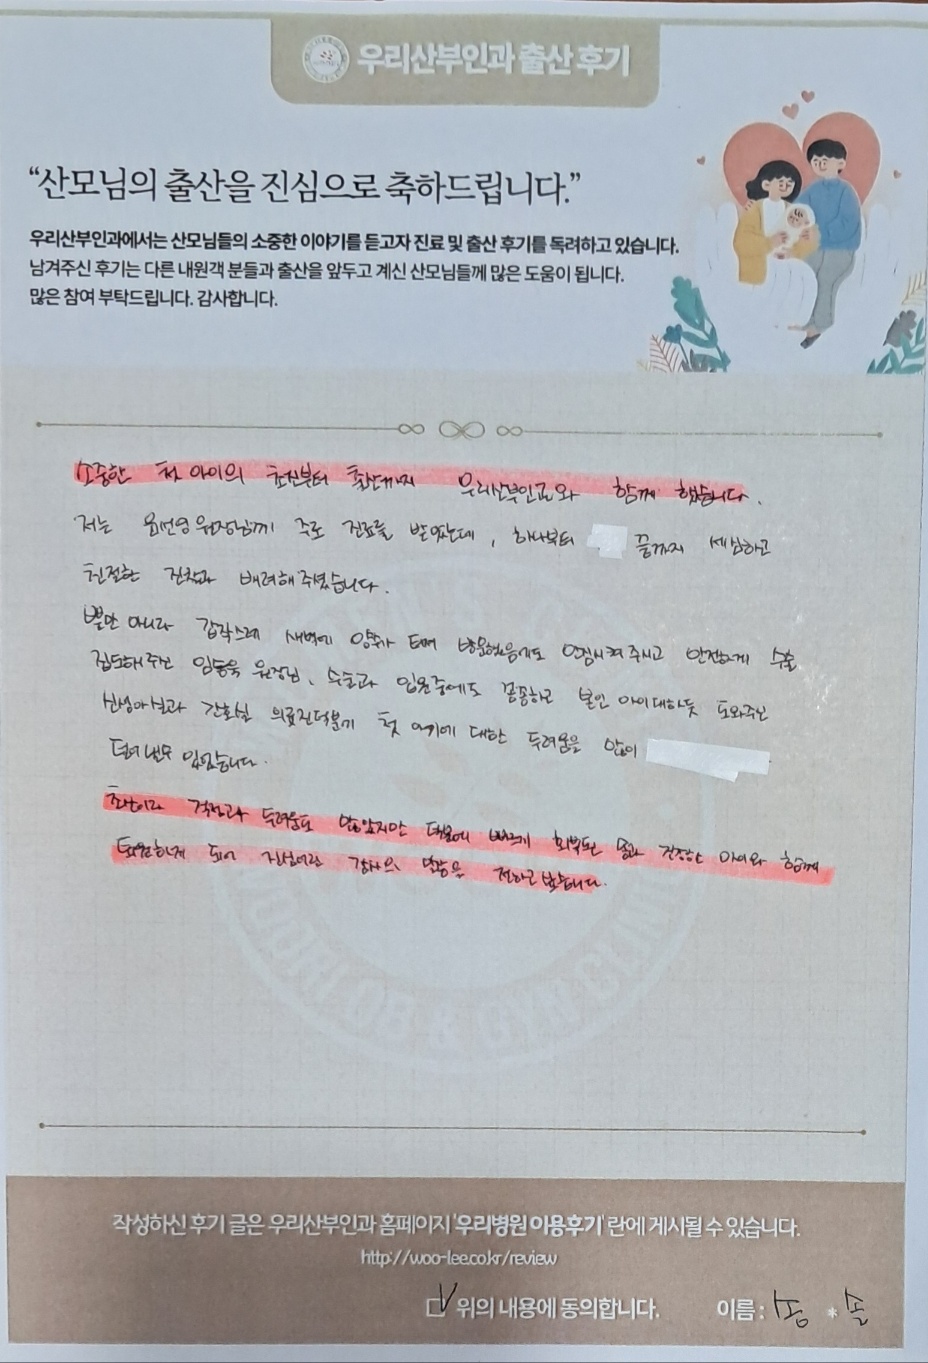 우리산부인과 출산 후기
“산모님의 출산을 진심으로 축하드립니다.”
우리산부인과에서는 산모님들의 소중한 이야기를 듣고자 진료 및 출산 후기를 독려하고 있습니다.
남겨주신 후기는 다른 내원객 분들과 출산을 앞두고 계신 산모님들께 많은 도움이 됩니다.
많은 참여 부탁드립니다. 감사합니다.
소중한 첫 아이의 초진부터 출산까지 우리산부인과와 함께 했습니다.
저는 윤선영 원장님께 주로 진료를 받았는데, 하나부터 끝까지 세심하고
친절한 진찰과 배려해주셨습니다.
뿐만 아니라 갑작스레 새벽에 양수가 터져 방문했음에도 안심시켜 주시고 안전하게 수술
집도해주신 임동욱 원장님, 수술과 입원중에도 꼼꼼하고 본인 아이 대하듯 도와주신
신생아실과 간호실 의료진덕분에 첫 아기에 대한 두려움을 많이
덜어낼수 있었습니다.
초산이라 걱정과 두려움도 많았지만 덕분에 빠르게 회복된 몸과 건강한 아이와 함께
퇴원하게 되어 감사의 말씀을 전하고 싶습니다.
WOORI OB & GYN CLINIC
작성하신 후기 글은 우리산부인과 홈페이지 '우리병원 이용후기' 란에 게시될 수 있습니다.
http://woo-lee.co.kr/review
위의 내용에 동의합니다. 이름 : * 솔